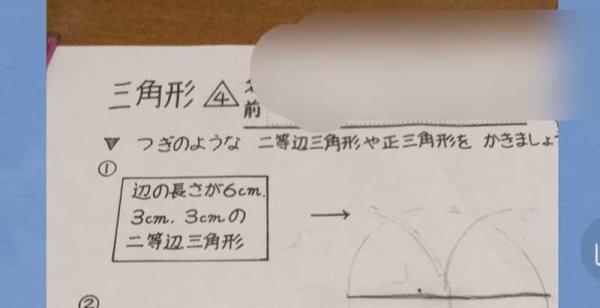 三角形 4
前
▼ つぎのような 二等辺三角形や正三角形を かきましょ
①
辺の長さが6cm.
3cm. 3cmの
二等辺三角形
→
②